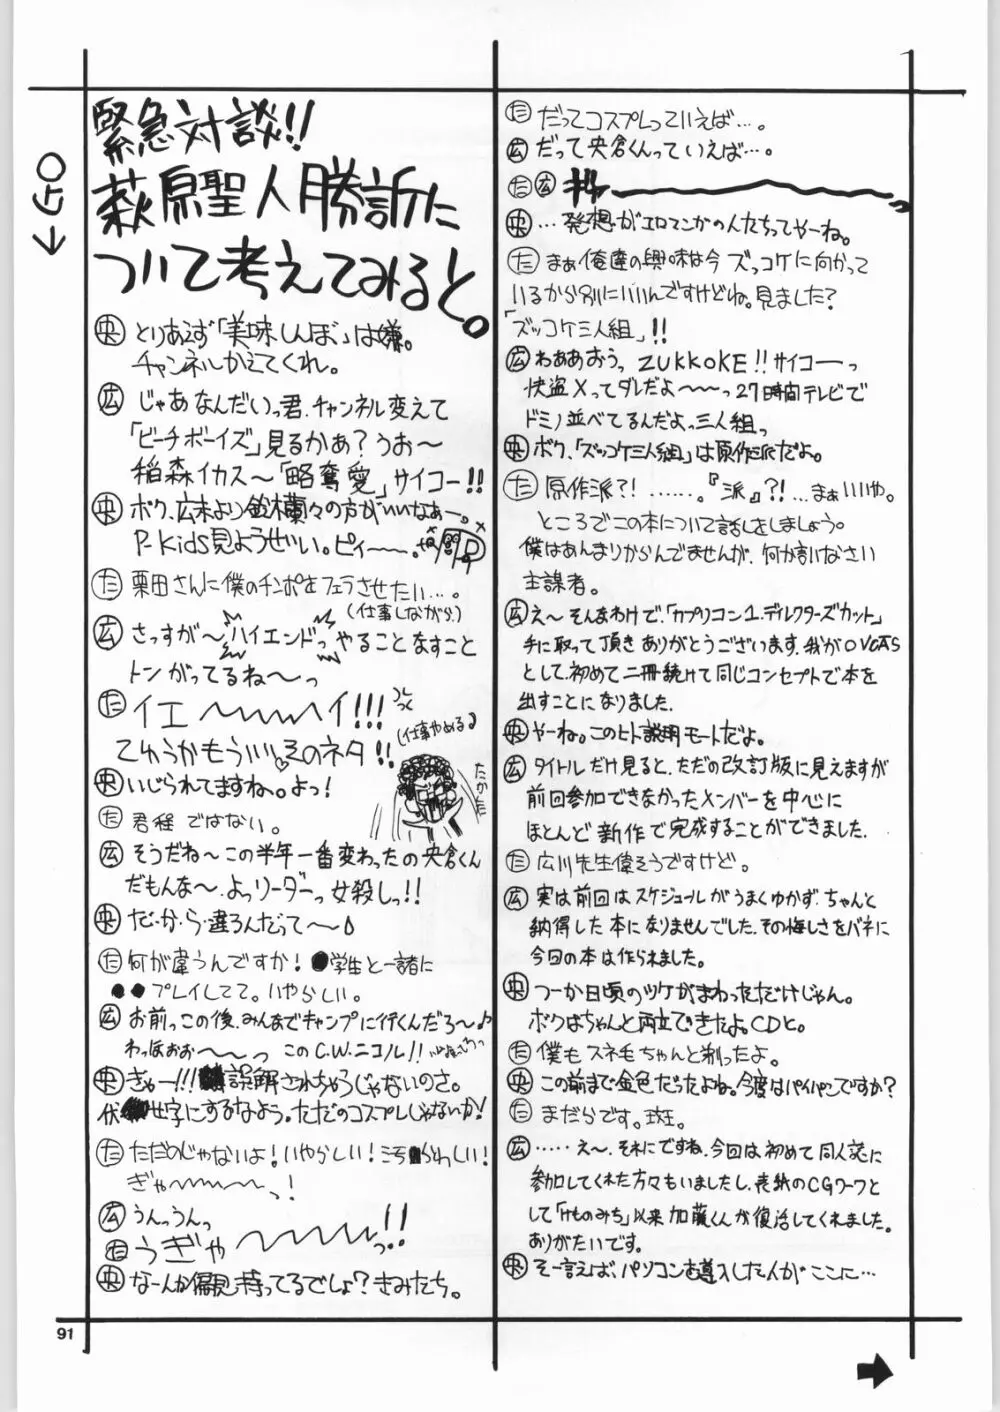 ←GO
緊急対談!!
萩原聖人勝訴に
ついて考えてみると。
央 とりあえず「美味しんぼ」は嫌。
チャンネルかえてくれ。
広 じゃあなんだいっ君、チャンネル変えて
「ビーチボーイズ」見るかぁ?うお〜
稲森イカス〜「略奪愛」サイコー!!
央 ボク、広末より鈴木蘭々の方がいいなぁー。
P-Kids見ようぜい。ピィ〜〜。
た 栗田さんに僕のチンポをフェラさせたい…。
(仕事しながら)
広 さっすが〜ハイエンドっやることなすこと
トンがってるね〜っ
た イエ〜〜〜イ!!!
(仕事やめる)
てゆうかもういいそのネタ!!
央 いじられてますね。よっ!
た 君程ではない。
広 そうだね〜この半年一番変わったの央倉くん
だもんな〜、よっリーダーっ女殺しっ!!
央 だ・か・ら・違ろんだって〜♪
た 何が違うんですか!●学生と一諸に
●●プレイしてて。いやらしい。
広 お前っこの後、みんなでキャンプに行くんだろ〜♪
わっほおぉ〜〜っ このC.W.ニコル!!
央 ぎゃー!!!誤解されちゃうじゃないのさ。
伏せ字にするなよう。ただのコスプレじゃないか!
た ただのじゃないよ!いやらしい!汚らわしい!
ぎゃ〜〜〜〜っ!
広 うんっうんっ
た うぎゃ〜〜〜っ!!
央 なーんか偏見持ってるでしょ?きみたち。
た だってコスプレっていえば…。
広 だって央倉くんっていえば…。
た 広
央 …発想がエロマンガの人たちってやーね。
た まぁ俺達の興味は今ズッコケに向かって
いるから別にいいんですけどね。見ました?
「ズッコケ三人組」!!
広 わぁあおうっ ZUKKOKE!!サイコーっ
快盗Xってダレだよ〜〜っ27時間テレビで
ドミノ並べてるんだよっ三人組っ
央 ボク、「ズッコケ三人組」は原作派だよ。
た 原作派?!……。『派』?!…まぁいいや。
ところでこの本について話しをしましょう。
僕はあんまりからんでませんが、何か言いなさい
主謀者。
広 え〜そんなわけで、「カプリコン1.ディレクターズカット」
手に取って頂きありがとうございます、我がOVCAS
として、初めて二冊続けて同じコンセプトで本を
出すことになりました.
央 やーね。このヒト説明モードだよ。
広 タイトルだけ見ると、ただの改訂版に見えますが
前回参加できなかったメンバーを中心に
ほとんど新作で完成することができました.
た 広川先生偉そうですけど。
広 実は前回はスケジュールがうまくゆかず、ちゃんと
納得した本になりませんでした.その悔しさをバネに
今回の本は作られました。
央 つーか日頃のツケがまわっただけじゃん。
ボクはちゃんと両立できたよ。CDと。
た 僕もスネ毛ちゃんと剃ったよ。
央 この前まで金色だったよね。今度はパイパンですか?
た まだらです。斑。
広 ……え〜、それにですね、今回は初めて同人誌に
参加してくれた方々もいましたし、表紙のCGワークと
して「けものみち」以来加藤くんが復活してくれました。
ありがたいです。
央 そー言えば、パソコンを導入した人がここに…
91